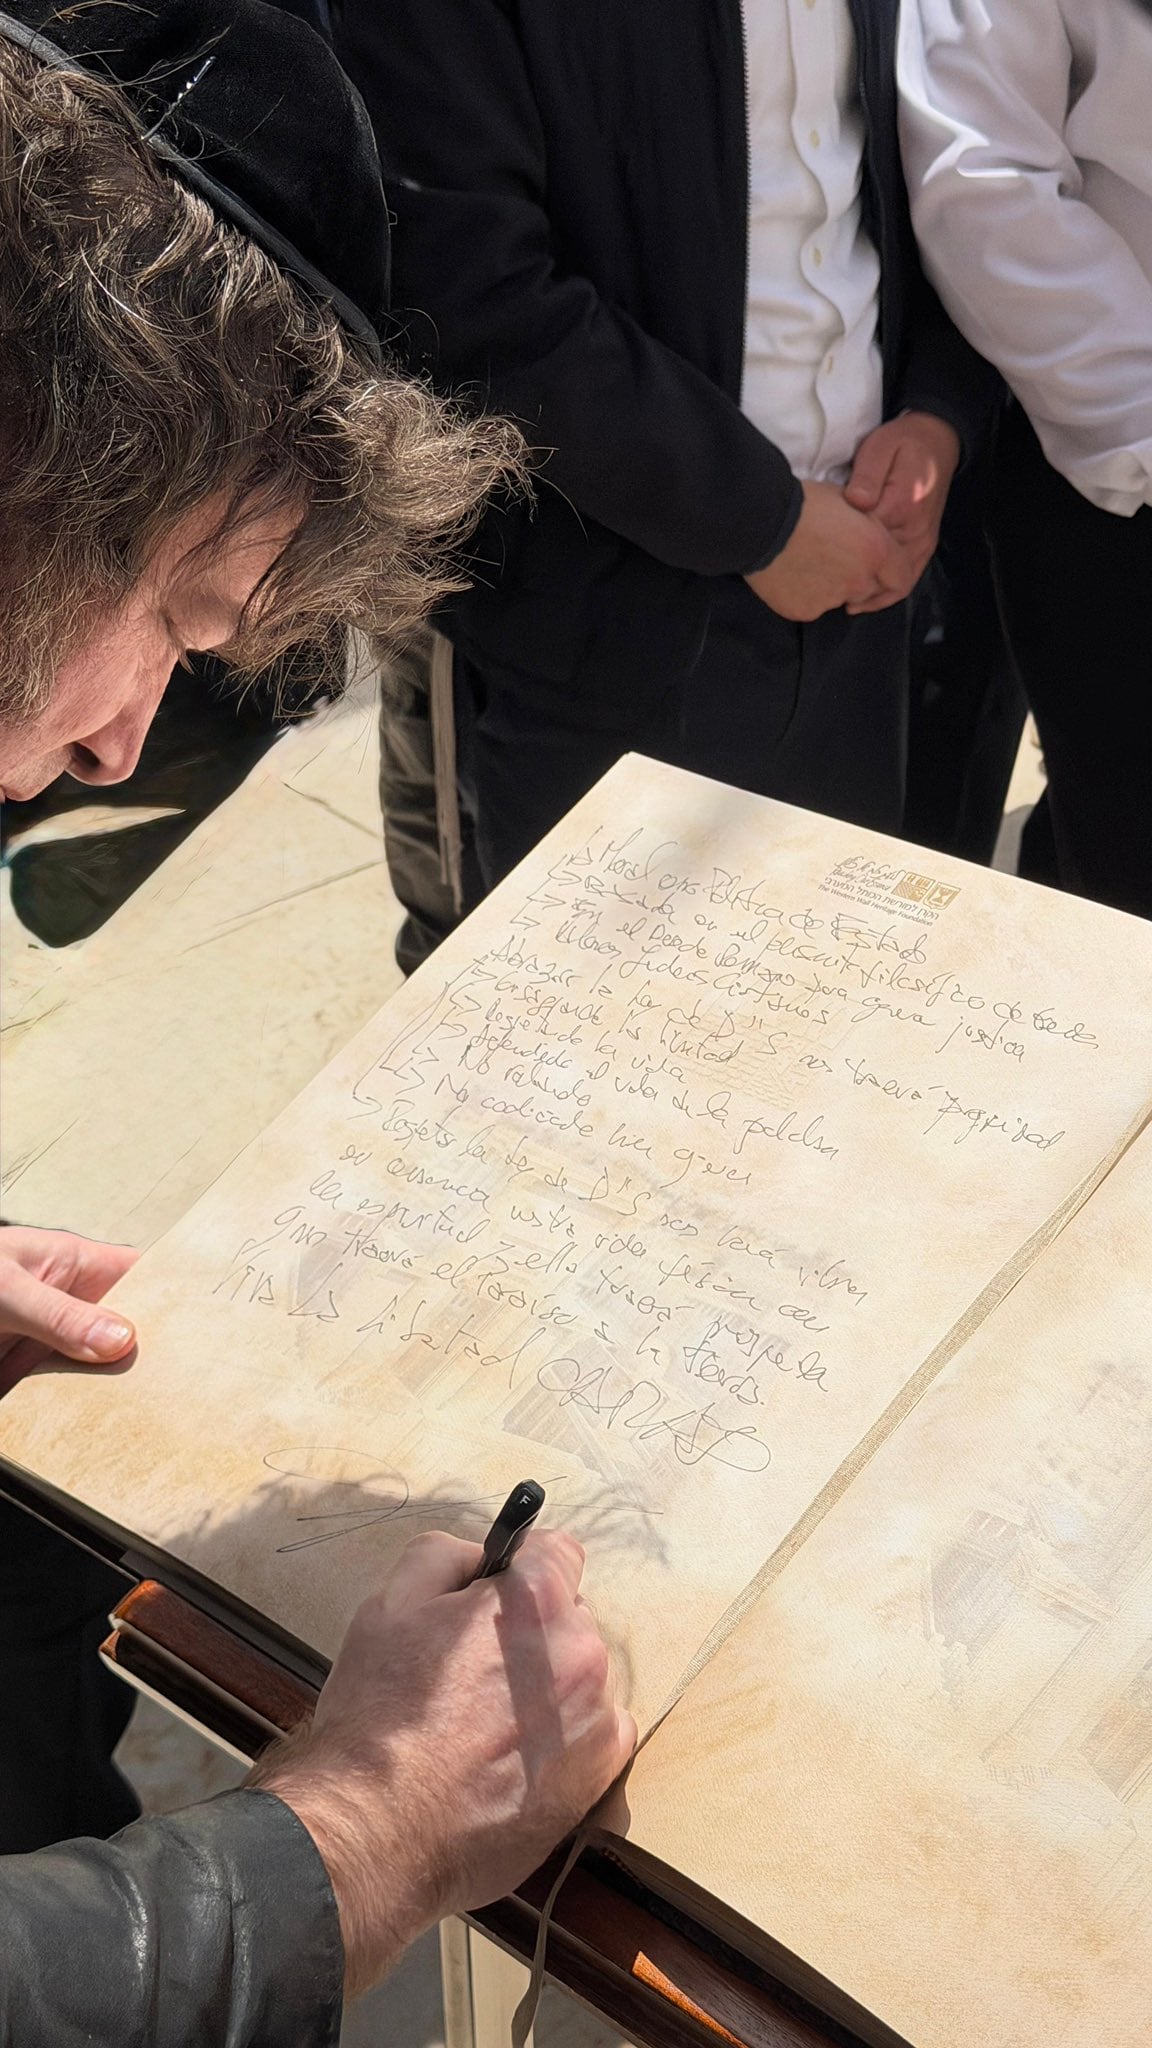 הקרן למורשת הכותל המערבי
The Western Wall Heritage Foundation
Moral como Política de Estado
Basada en el filosófico de
en el Derecho Romano para justicia
Valores Judeo Cristianos
Abrazar la Ley de D''S nos traerá prosperidad
la libertad
Respetando la vida
el valor de la palabra
No robando
No codiciando bien ajeno
Respetar la Ley de D''S nos hará vibrar
en nuestra vida física con
la espiritual y ella traerá
que traerá el Paraíso a la tierra.
VIVA LA libertad CARAJO
F